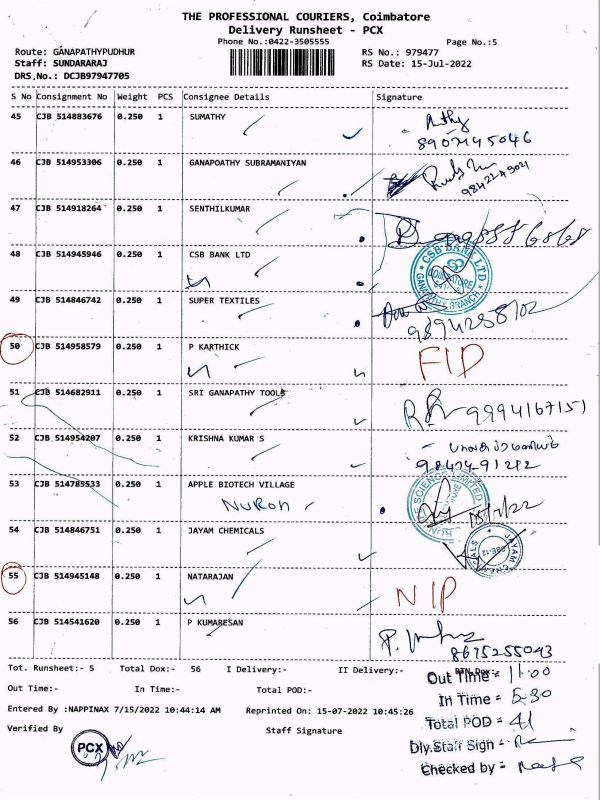 THE PROFESSIONAL COURIERS, Coimbatore
Delivery Runsheet - PCX
Phone No.:0422-3505555 Page No.:5
Route: GANAPATHYPUDHUR RS No.: 979477
Staff: SUNDARARAJ RS Date: 15-Jul-2022
DRS.No.: DCJB97947705
S No Consignment No Weight PCS Consignee Details Signature
45 CJB 514883676 0.250 1 SUMATHY
46 CJB 514953306 0.250 1 GANAPOATHY SUBRAMANIYAN
47 CJB 514918264 0.250 1 SENTHILKUMAR
48 CJB 514945946 0.250 1 CSB BANK LTD
CSB BANK LTD
COIMBATORE
GANAPATHY BRANCH
49 CJB 514846742 0.250 1 SUPER TEXTILES
9894258702
50 CJB 514958579 0.250 1 P KARTHICK
FID
51 CJB 514682911 0.250 1 SRI GANAPATHY TOOLS
9994167151
52 CJB 514954207 0.250 1 KRISHNA KUMAR S
98474-91282
53 CJB 514785533 0.250 1 APPLE BIOTECH VILLAGE
NURON
54 CJB 514846751 0.250 1 JAYAM CHEMICALS
JAYAM CHEMICALS
55 CJB 514945148 0.250 1 NATARAJAN
NIP
56 CJB 514541620 0.250 1 P KUMARESAN
8675255043
Tot. Runsheet:- 5 Total Dox:- 56 I Delivery:- II Delivery:-
Out Time = 11.00
Out Time:- In Time:- Total POD:-
In Time = 5.30
Entered By :NAPPINAX 7/15/2022 10:44:14 AM Reprinted On: 15-07-2022 10:45:26
Total POD = 41
Verified By Staff Signature
Dly.Staff Sign =
PCX
Checked by =